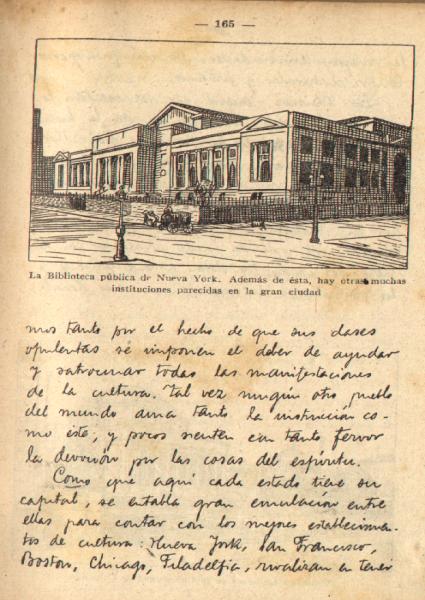 — 165 —
La Biblioteca pública de Nueva York. Además de ésta, hay otras muchas
instituciones parecidas en la gran ciudad
mos tanto por el hecho de que sus clases
opulentas se imponen el deber de ayudar
y patrocinar todas las manifestaciones
de la cultura. Tal vez ningún otro pueblo
del mundo ama tanto la instrucción co-
mo éste, y pocos sienten con tanto fervor
la devoción por las cosas del espíritu.
Como que aquí cada estado tiene su
capital, se entabla gran emulación entre
ellas para contar con los mejores establecimien-
tos de cultura: Nueva York, San Francisco,
Boston, Chicago, Filadelfia, rivalizan a tener